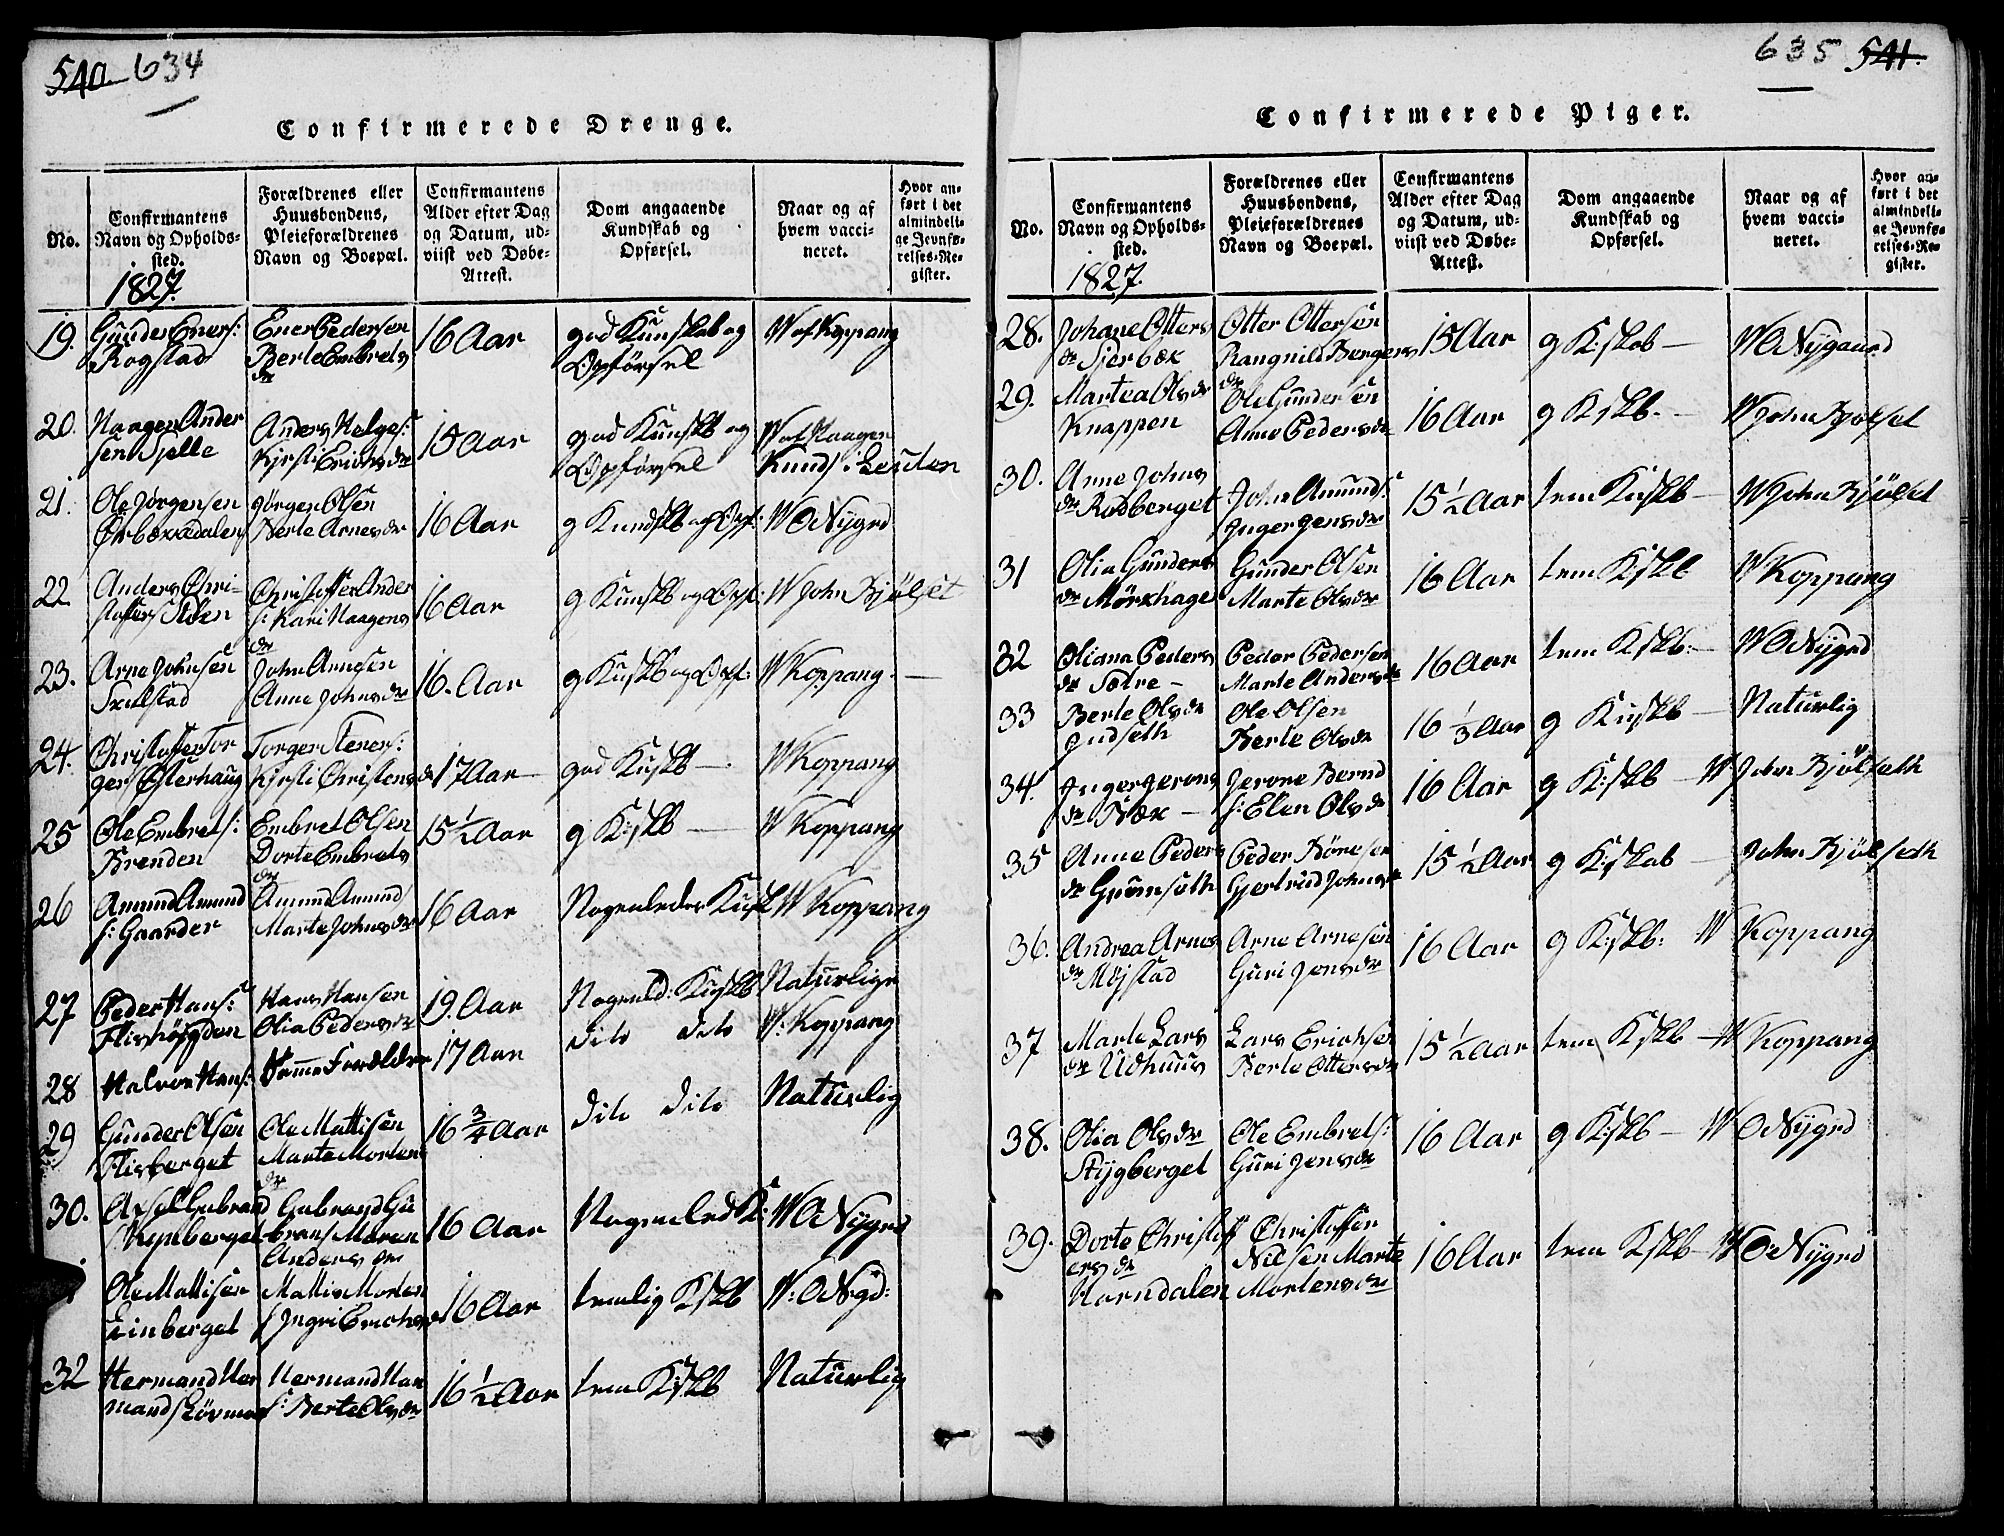 540 634
Confirmerede Drenge.
No.
Confirmantens
Navn og Opholds-
sted.
Forældrenes eller
Huusbondens,
Pleieforældrenes
Navn og Boepæl.
Confirmantens
Alder efter Dag
og Datum, ud-
viist ved Døbe-
Attest.
Dom angaaende
Kundskab og
Opførsel.
Naar og af
hvem vacci-
neret.
Hvor an-
ført i det
almindeli-
ge Jevnfø-
relses-Re-
gister.
1827.
19. Gunder Eners:
Rogstad
Ener Pedersen
Berte Embrets
dr
16 Aar
god Kunskab og
Opførsel
V af Koppang
20. Haagen Ander
sen Sjølle
Anders Helges:
Kjersti Ericksdr
15 Aar
god Kunskb og
Opførsel
V af Haagen
Knuds i Leuten
21. Ole Jørgensen
Ørbækædalen
Jørgen Olsen
Berte Arnesdr
16 Aar
g Kundskb og Opf:
V O Nygrd
22 Anders Chri-
stoffers
Christoffer Ander
s: Kari Haagens
dr
16 Aar
g Kunskb og Opf:
V John Bjølset
23. Arne Johnsen
Trulstad
John Arnesen
Anne Johnsdr
16. Aar
g Kuskb og Opf:
V Koppang
24. Christoffer Tor
gers Østerhaug
Torger Steners:
Kjersti Christens dr
17 Aar
god Kuskb
V Koppang
25 Ole Embrets:
Brenden
Embret Olsen
Dorte Embrets
dr
15 1/2 Aar
g K:skb
V Koppang
26 Amund Amund
s: Gaarder
Amund Amund
Marte Johnsdr
16 Aar
Nogenledes Kuskb
V Koppang
27 Peder Hans:
Flishøgden
Hans Hansen
Olia Pedersdr
19. Aar
Nogenld: Kuskb
Naturlige
28 Halvor Hans:
Samme Forældre
17 Aar
dito dito
V: Koppang
29 Gunder Olsen
Flisberget
Ole Mattisen
Marte Mortens
dr
16 3/4 Aar
dito dito
Naturlig
30. Axsel Gubrand
Gubrand Gu
brans Maren
Anders dr
16 Aar
Nogenled K:
V O Nygrd
Ole Mattisen
Linberget
Mattis Morten
s Ingri Erichsdr
16 Aar
temlig Kskb
V: O Nygd:
32 Hermand Her
mands Løvmoe
Hermand Her
s: Berte Olsdr
16 1/2 Aar
tem K:skb
Naturlig
635 541.
Confirmerede Piger.
No.
Confirmantens
Navn og Opholds-
sted.
Forældrenes eller
Huusbondens,
Pleieforældrenes
Navn og Boepæl.
Confirmantens
Alder efter Dag
og Datum, ud-
viist ved Døbe-
Attest.
Dom angaaende
Kundskab og
Opførsel.
Naar og af
hvem vacci-
neret.
Hvor an-
ført i det
almindeli-
ge Jevnfø-
relses-Re-
gister.
1827.
28. Johane Otters
dr Sjerbæk
Otter Ottersen
Rangnild Bergers
dr
15 Aar
g K:skab
V O Nygaard
29. Martea Olsdr
Knappen
Ole Gundersen
Anne Pedersdr
16 Aar
g Kskb.
V John Bjølset
30. Anne Johns
dr Rødberget
John Amunds:
Inger Jensdr
15 1/2 Aar
tem Kuskb
V John Bjølset
31 Olia Gunders
dr Mørkhage
Gunder Olsen
Marte Olsdr
16 Aar
tem Kskb
V Koppang
32 Oliana Peders
dr Sætre
Peder Pedersen
Marte Andersdr
16 Aar
tem Kskb:
V O Nygrd
33 Berte Olsdr
Judseth
Ole Olsen
Berte Olsdr
16 1/3 Aar
g Kuskb
Naturlig
34. Inger Jerons
dr Bæk
Jerone Bernd
s: Elen Olsdr
16 Aar
g K:skb
V John Bjølseth
35 Anne Peders
dr Grønseth
Peder Børesen
Gjertrud Johnsdr
15 1/2 Aar
g K:skab
John Bjølseth
36. Andrea Arnes
dr Møjstad
Arne Arnesen
Guri Jensdr
16 Aar
g K:skb:
V Koppang
37 Marte Lars
dr Udhuus
Lars Erichsen
Berte Ottersdr
15 1/2 Aar
tem Kskb
V Koppang
38. Olia Olsdr
Stygberget
Ole Embrets:
Guri Jensdr
16 Aar
g K:skb
V O Nygrd
39. Dorte Christoff
ersdr
Horndalen
Christoffer
Nilsen Marte
Mortensdr
16 Aar
tem Kskb
V O Nygrd